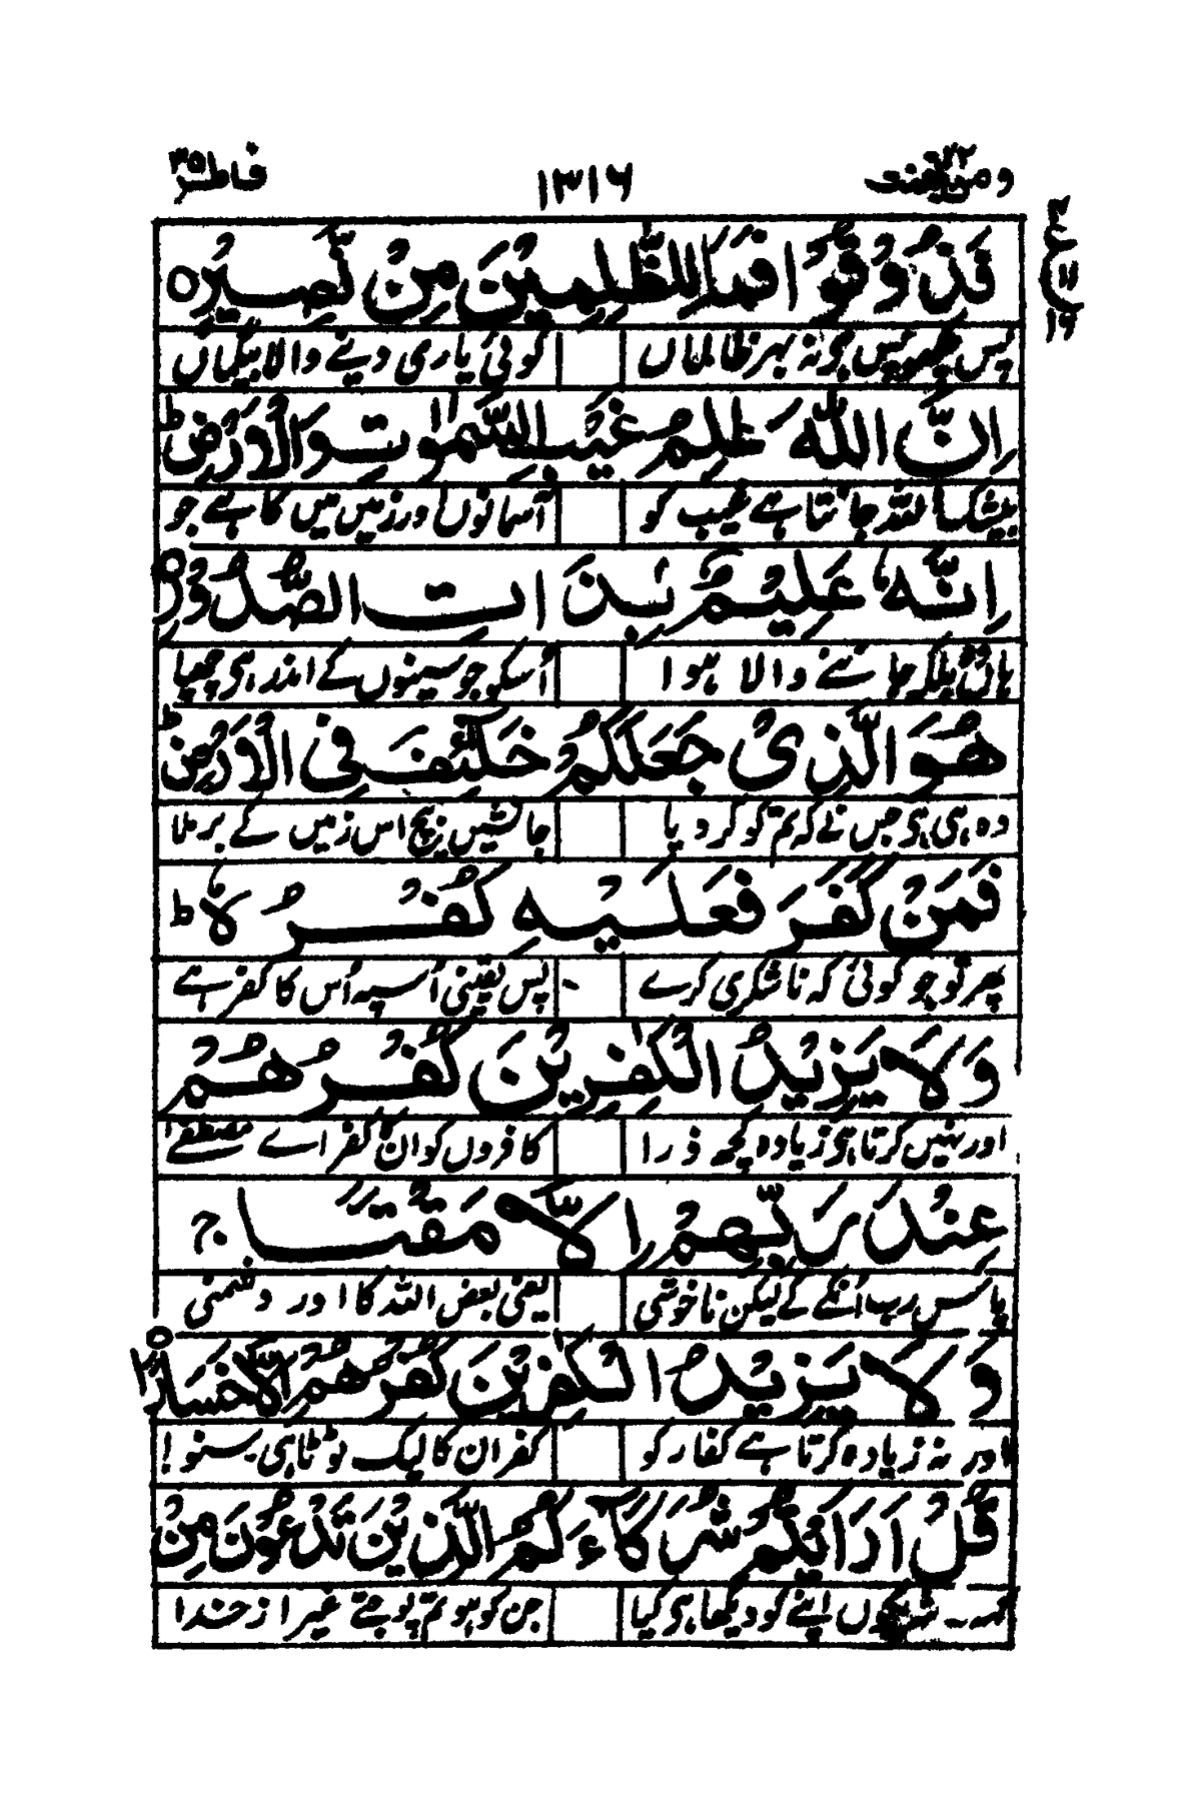 ومن یقنت ۲۲
۱۳۱۶
فاطر ۳۵
۴
ع
۱۱
۱۶
فَذُوْقُوْا فَمَا لِلظّٰلِمِيْنَ مِنْ نَّصِيْرٍ ○
پس چکھو پس ہو نہ بہر ظالماں کوئی یاری دینے والا بیگماں
اِنَّ اللّٰهَ عٰلِمُ غَيْبِ السَّمٰوٰتِ وَالْاَرْضِ ؕ
بیشک اللہ جانتا ہے غیب کو آسمانوں اور زمیں میں کا ہے جو
اِنَّهٗ عَلِيْمٌۢ بِذَاتِ الصُّدُوْرِ ○
جاننے والا ہوا اُسکو جو سینوں کے اندر ہی چھپا
هُوَ الَّذِىْ جَعَلَكُمْ خَلٰٓئِفَ فِى الْاَرْضِ ؕ
وہ ہی ہی جس نے کہ تم کو کر دیا جانشیں بیچ اس زمیں کے برملا
فَمَنْ كَفَرَ فَعَلَيْهِ كُفْرُهٗ ؕ
پھر تو جو کوئی کہ ناشکری کرے پس یقینی اُسپہ اُس کا کفر ہے
وَلَا يَزِيْدُ الْكٰفِرِيْنَ كُفْرُهُمْ
اور نہیں کرتا ہی زیادہ کچھ ذرا کافروں کو ان کا کفر اے مصطفےٰ
عِنْدَ رَبِّهِمْ اِلَّا مَقْتًا ۚ
پاس رب اُنکے کے لیکن ناخوشی یعنی بعض اللہ کا اور دشمنی
وَلَا يَزِيْدُ الْكٰفِرِيْنَ كُفْرُهُمْ اِلَّا خَسَارًا ○
اور نہ زیادہ کرتا ہے کفار کو کفر ان کا لیک ٹوٹا ہی سنو !
قُلْ اَرَاَيْتُمْ شُرَكَآءَكُمُ الَّذِيْنَ تَدْعُوْنَ مِنْ
شریکوں اپنے کو دیکھا ہی کیا جن کو ہو تم پوجتے غیر از خدا